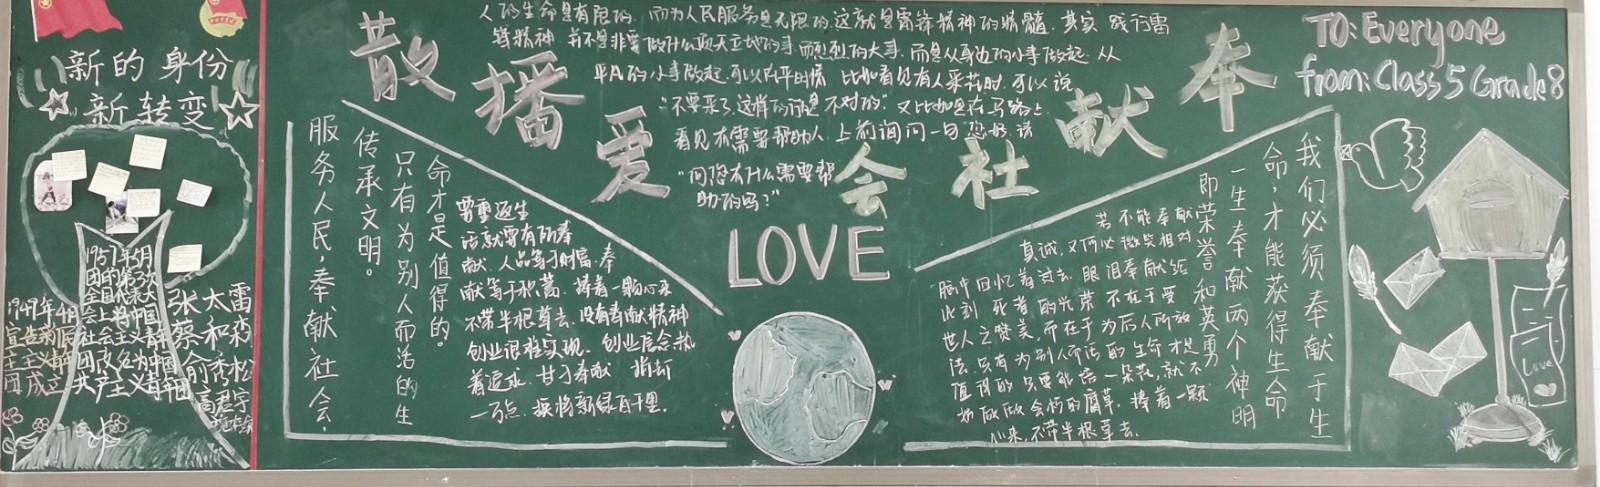 新的身份
新转变
1957年5月
团的第三次
全国代表大
会上将中国
社会主义青
团改名为中国
共产主义青年团
1949年4月
宣告新民
主主义青年
团成立
张太雷
蔡和森
俞秀松
高君宇
散播爱
会社献奉
人的生命是有限的，而为人民服务是无限的，这就是雷锋精神的精髓，其实，践行雷
锋精神，并不是非要做什么顶天立地的事，而烈烈的大事，而是从身边的小事做起，从
平凡的小事做起，可以在平时情，比如看见有人采花时，可以说
“不要采了，这样的行是不对的”又比如是在马路上
看见有需要帮助人，上前询问一句您好，请
“问您有什么需要帮
助的吗？”
LOVE
服务人民，奉献社会。
传承文明。
只有为别人而活的生
命才是值得的。
话就要有所奉
献，人品等于财富，奉
献等于积蓄，捧着一颗心来
不带半根草去，没有奉献精神
创业很难实现，创业信念执
着追求，甘于奉献
一万点，换将新绿百千里。
我们必须奉献于生
命，才能获得生命
一生奉献两个神明
即荣誉和英勇
若不能奉献
真诚，又何必微笑相对
脑中回忆着过去，眼泪奉献给
此刻，死者的光荣不在于受
世人之赞美，而在于为后人所效
法，只有为别人而活的生命才是
值得的，只要能培一朵花，就不
妨做做会朽的腐草，捧着一颗
心来，不带半根草去。
TO: Everyone
from: Class 5 Grade 8
Love